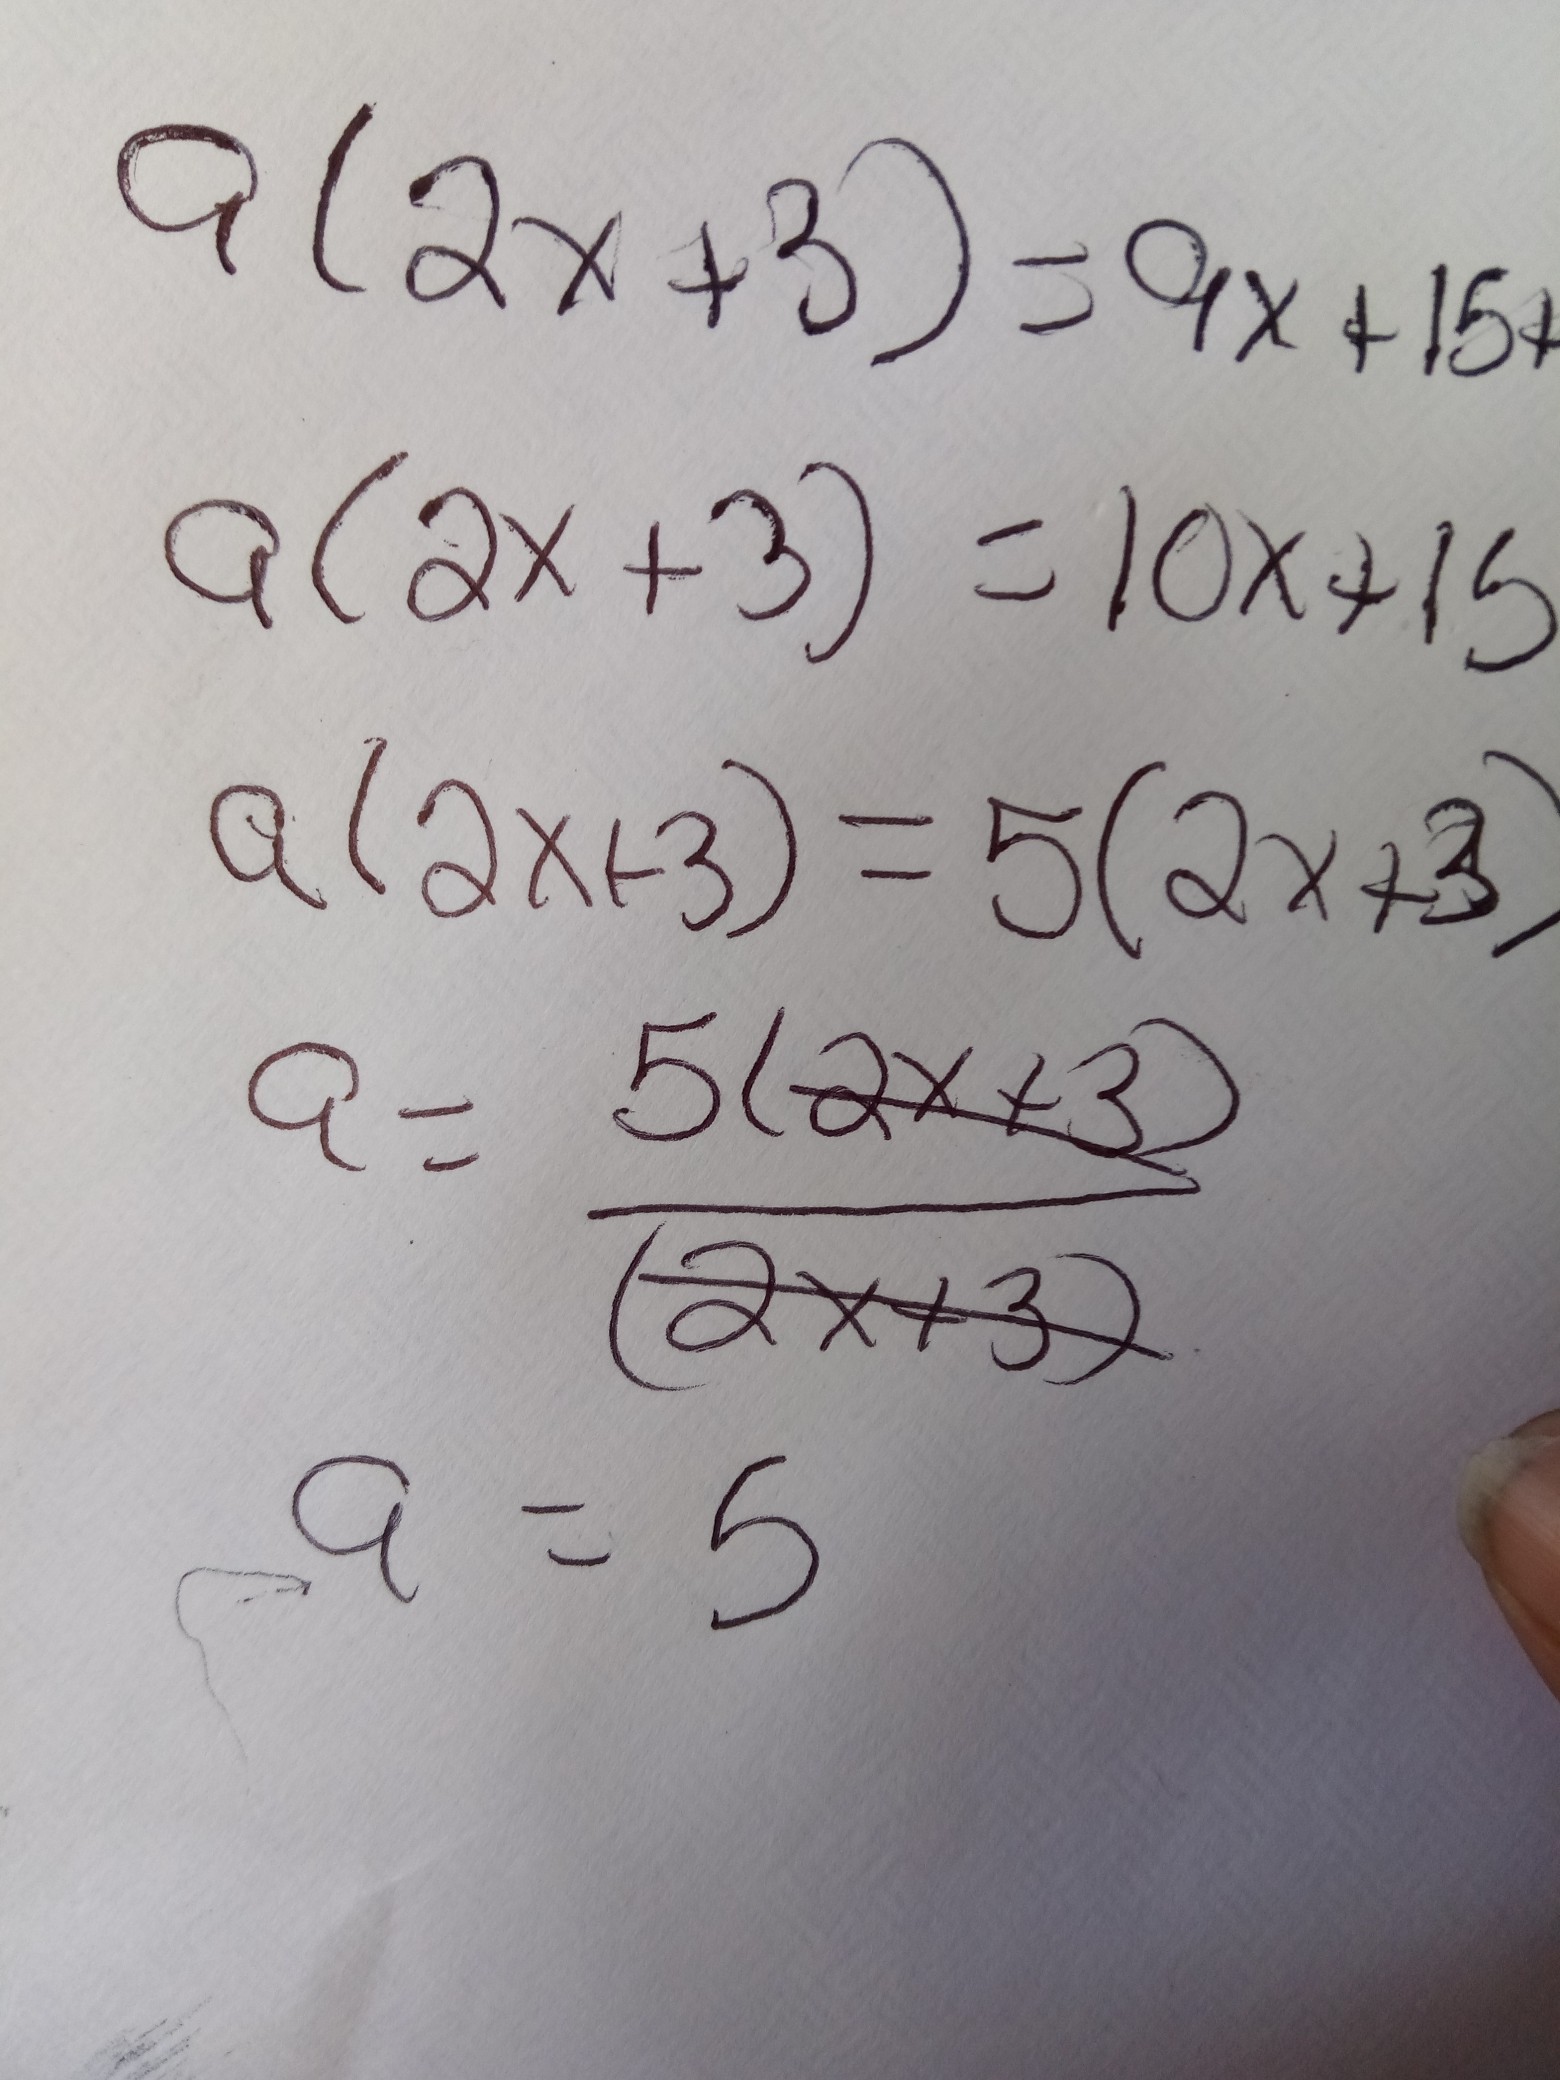 a(2x+3)=9x+15+
a(2x+3)=10x+15
a(2x+3)=5(2x+3)
a=5(2x+3)
(2x+3)
a=5